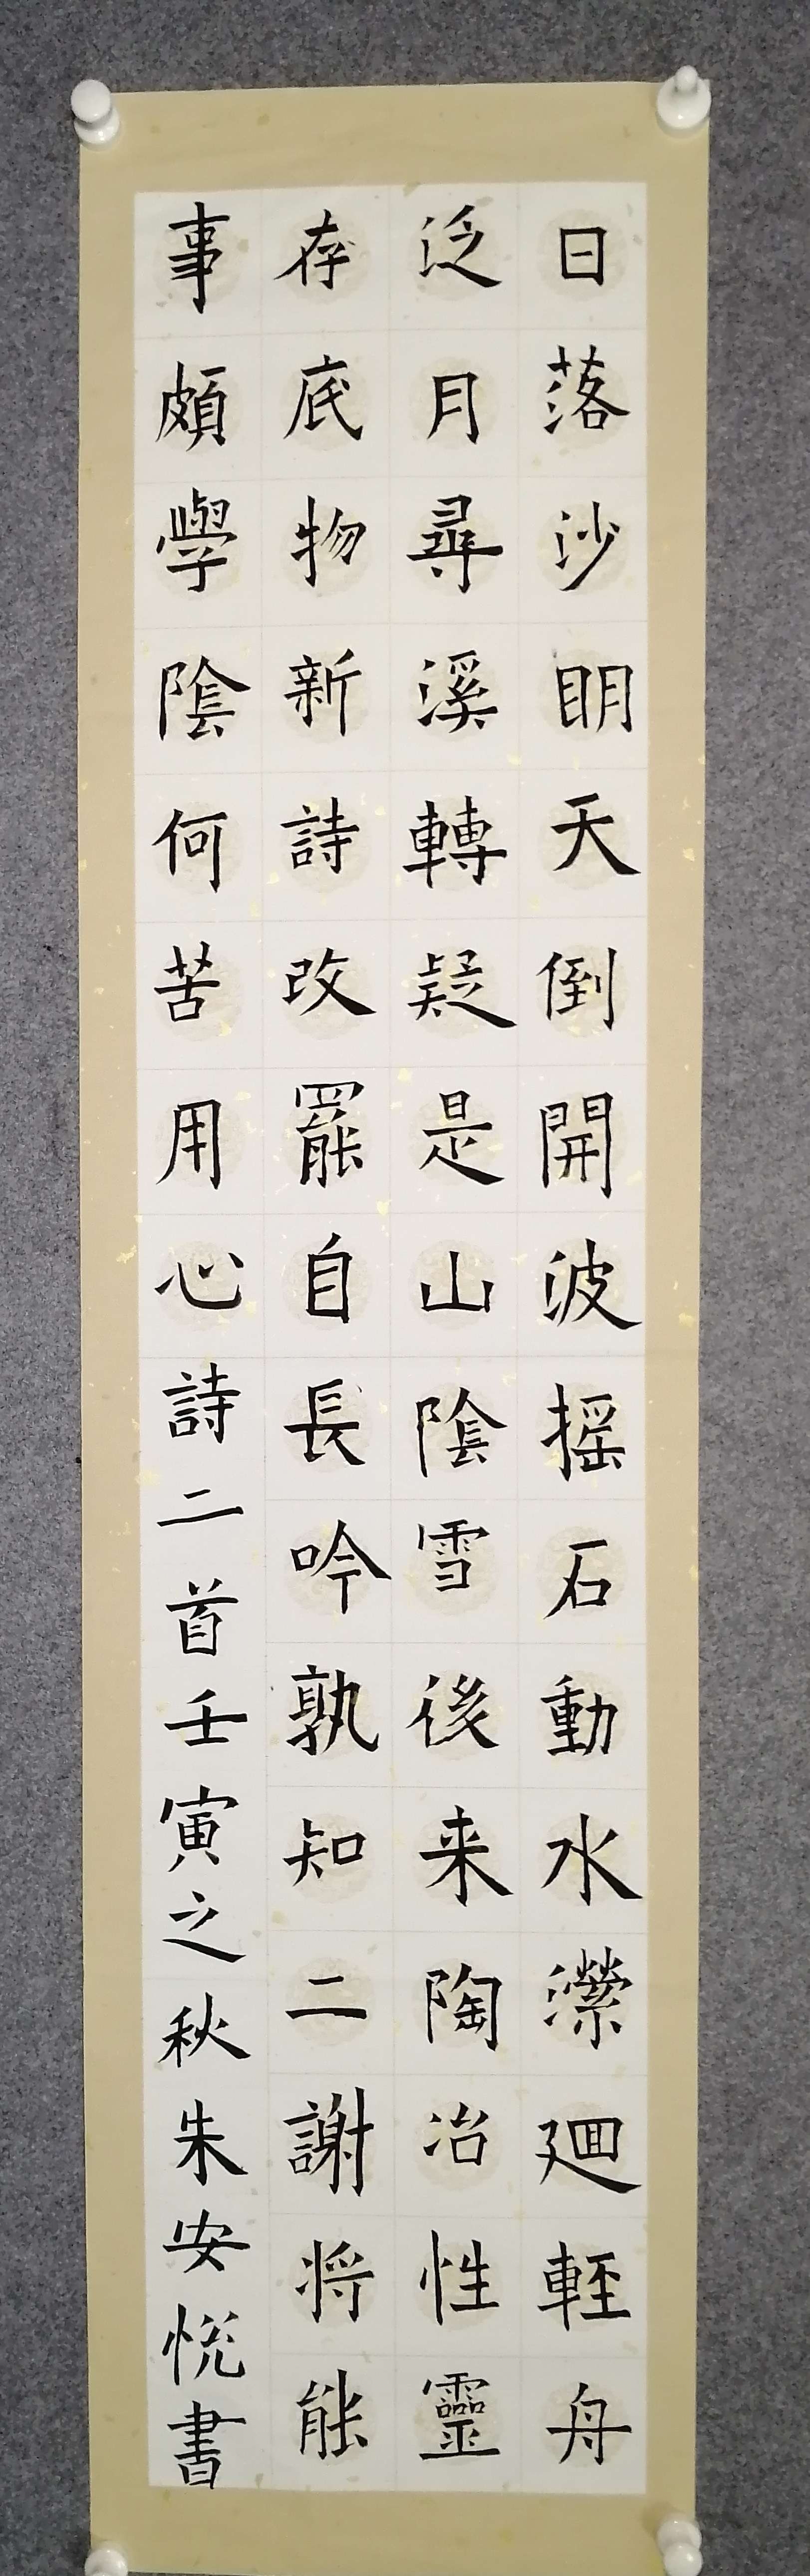 日落沙眀天倒開波揺石動水瀠廻輕舟
泛月尋溪轉疑是山陰雪後来陶冶性靈
存底物新詩改罷自長吟孰知二謝将能
事頗學陰何苦用心詩二首壬寅之秋朱安悦書